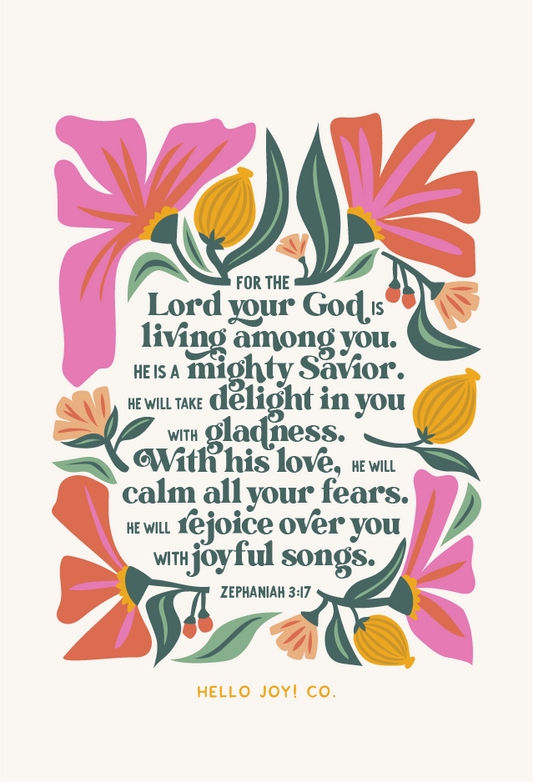 FOR THE
Lord your God IS
living among you.
HE IS A mighty Savior.
HE WILL TAKE delight in you
WITH gladness.
With his love, HE WILL
calm all your fears.
HE WILL rejoice over you
WITH joyful songs.
ZEPHANIAH 3:17
HELLO JOY! CO.